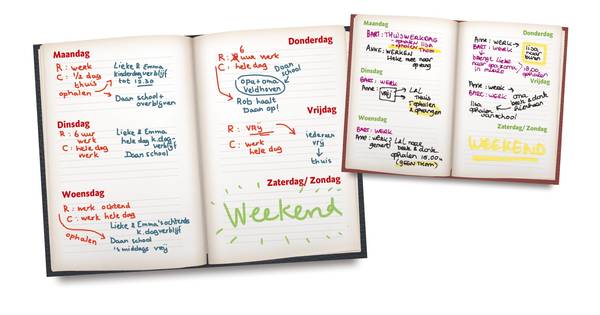 Maandag
R: week
C: 1/2 dag
thuis
ophalen
Lieke & Emma
kinderdagverblijf
tot 12.30
Daan school +
overblijven
Dinsdag
R: 6 uur
werk
C: hele dag
werk
Lieke & Emma
hele dag k.dag-
verblijf
Daan school
Woensdag
R: werk ochtend
C: werk hele dag
ophalen
Lieke & Emma's ochtends
k.dagverblijf
Daan school
's middags vrij
Donderdag
6
R: uur werk
C: hele dag
Daan
school
opa + oma
Veldhoven
Rob haalt
Daan op!
Vrijdag
R: vrij
C: werk
hele dag
iedereen
vrij
thuis
Zaterdag/ Zondag
Weekend
Maandag
BART: THUISWERKDAG
- ophalen lisa
- ophalen Thom
ANKE: WERKEN
Dinsdag
BART: WERK
Anne:
VRIJ
LAL
ophalen &
Woensdag
BART: WERK
Anne: werk
LAL naar
ophalen 18.00u
(GEEN THOM)
Donderdag
Anne: werk
BART: WERK
lisa
naar
buren
brengt lieke
naar opa & oma
18.00
ophalen
Vrijdag
Anne: werk
BART: WERK
oma
lisa
ophalen
van school
Zaterdag/ Zondag
WEEKEND